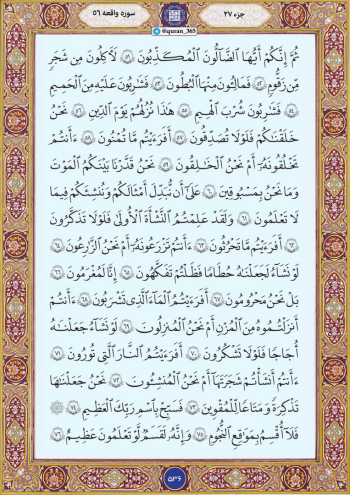 سوره واقعه ۵۶
@quran_365
جزء ۲۷
ثُمَّ إِنَّكُمْ أَيُّهَا ٱلضَّآلُّونَ ٱلْمُكَذِّبُونَ ۝٥١ لَـَٔاكِلُونَ مِن شَجَرٍ
مِّن زَقُّومٍ ۝٥٢ فَمَالِـُٔونَ مِنْهَا ٱلْبُطُونَ ۝٥٣ فَشَـٰرِبُونَ عَلَيْهِ مِنَ ٱلْحَمِيمِ
۝٥٤ فَشَـٰرِبُونَ شُرْبَ ٱلْهِيمِ ۝٥٥ هَـٰذَا نُزُلُهُمْ يَوْمَ ٱلدِّينِ ۝٥٦ نَحْنُ
خَلَقْنَـٰكُمْ فَلَوْلَا تُصَدِّقُونَ ۝٥٧ أَفَرَءَيْتُم مَّا تُمْنُونَ ۝٥٨ ءَأَنتُمْ
تَخْلُقُونَهُۥٓ أَمْ نَحْنُ ٱلْخَـٰلِقُونَ ۝٥٩ نَحْنُ قَدَّرْنَا بَيْنَكُمُ ٱلْمَوْتَ
وَمَا نَحْنُ بِمَسْبُوقِينَ ۝٦٠ عَلَىٰٓ أَن نُّبَدِّلَ أَمْثَـٰلَكُمْ وَنُنشِئَكُمْ فِى مَا
لَا تَعْلَمُونَ ۝٦١ وَلَقَدْ عَلِمْتُمُ ٱلنَّشْأَةَ ٱلْأُولَىٰ فَلَوْلَا تَذَكَّرُونَ
۝٦٢ أَفَرَءَيْتُم مَّا تَحْرُثُونَ ۝٦٣ ءَأَنتُمْ تَزْرَعُونَهُۥٓ أَمْ نَحْنُ ٱلزَّٰرِعُونَ ۝٦٤
لَوْ نَشَآءُ لَجَعَلْنَـٰهُ حُطَـٰمًا فَظَلْتُمْ تَفَكَّهُونَ ۝٦٥ إِنَّا لَمُغْرَمُونَ ۝٦٦
بَلْ نَحْنُ مَحْرُومُونَ ۝٦٧ أَفَرَءَيْتُمُ ٱلْمَآءَ ٱلَّذِى تَشْرَبُونَ ۝٦٨ ءَأَنتُمْ
أَنزَلْتُمُوهُ مِنَ ٱلْمُزْنِ أَمْ نَحْنُ ٱلْمُنزِلُونَ ۝٦٩ لَوْ نَشَآءُ جَعَلْنَـٰهُ
أُجَاجًا فَلَوْلَا تَشْكُرُونَ ۝٧٠ أَفَرَءَيْتُمُ ٱلنَّارَ ٱلَّتِى تُورُونَ ۝٧١
ءَأَنتُمْ أَنشَأْتُمْ شَجَرَتَهَآ أَمْ نَحْنُ ٱلْمُنشِـُٔونَ ۝٧٢ نَحْنُ جَعَلْنَـٰهَا
تَذْكِرَةً وَمَتَـٰعًا لِّلْمُقْوِينَ ۝٧٣ فَسَبِّحْ بِٱسْمِ رَبِّكَ ٱلْعَظِيمِ ۝٧٤ ۞
فَلَآ أُقْسِمُ بِمَوَٰقِعِ ٱلنُّجُومِ ۝٧٥ وَإِنَّهُۥ لَقَسَمٌ لَّوْ تَعْلَمُونَ عَظِيمٌ ۝٧٦
۵۳۶